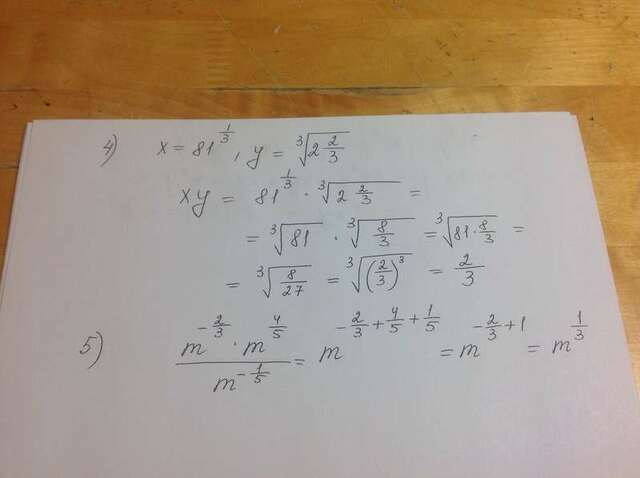 4) x = 81^{1/3}, y = ∛(2 2/3)
xy = 81^{1/3} · ∛(2 2/3) =
= ∛81 · ∛(8/3) = ∛(81 · 8/3) =
= ∛(8/27) = ∛((2/3)^3) = 2/3
5) (m^{-2/3} · m^{4/5}) / m^{-1/5} = m^{-2/3 + 4/5 + 1/5} = m^{-2/3 + 1} = m^{1/3}